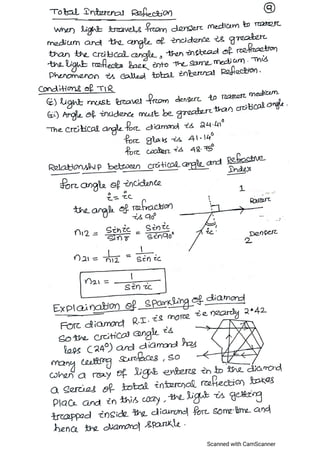 9
Total Internal Reflection
When light travels from denser medium to rarer
medium and the angle of incidence is greater
than the critical angle, then instead of refraction
the light reflects back into the same medium. This
Phenomenon is called total internal Reflection.
Conditions of TIR
(i) light must travel from denser to rarer medium
(ii) Angle of incidence must be greater than critical angle.
The critical angle for diamond is 24.41°
for glass is 41.14°
for water is 48.75°
Relationship between critical angle and Refractive
Index
for angle of incidence
i = ic
the angle of refraction
is 90°
1
Rarer
ic
Denser
2
n12 = Sin ic / Sin r = Sin ic / Sin 90°
n21 = 1 / n12 = 1 / Sin ic
n21 = 1 / Sin ic
Explaination of Sparkling of diamond
For diamond R.I. is more i.e nearly 2.42
So the critical angle is
less (24°) and diamond has
many cutting surfaces, so
when a ray of light enters in to the diamond
a series of total internal reflection takes
place and in this way, the light is getting
trapped inside the diamond for some time and
hence the diamond sparkle.
Scanned with CamScanner